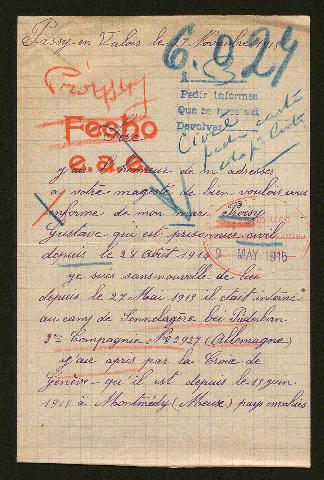 Passy-en Valois le 17 Novembre 1915
6.024
Pedir informes
Que se haga así
Devolver
Fecho
e.a.e.
Sire
j'ai l'honneur de m'adresser
a votre magesté de bien vouloir vous
informé de mon mari Proisy
Gustave qui est prisonnier civil
depuis le 28 Août 1914
9 MAY 1916
je suis sans nouvelle de lui
depuis le 27 Mai 1915 il était interné
au camp de Sennelagère bei Paderbon
2me Compagnie No 2927 (Allemagne)
j'ai apris par la Croix de
Genève qu'il est depuis le 15 juin
1915 à Montmédy (Meuse) pays envahies